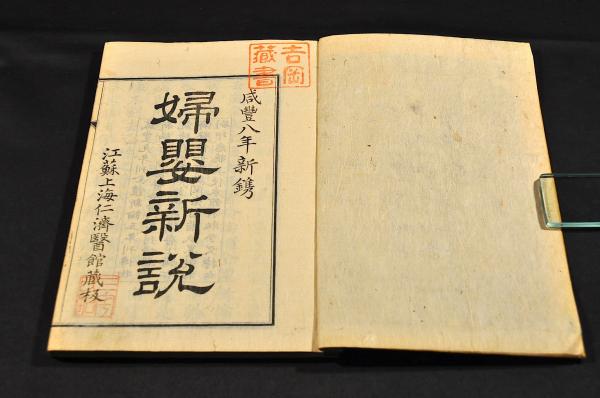 吉岡
藏書
咸豐八年新鐫
婦嬰新說
江蘇上海仁濟醫館藏板